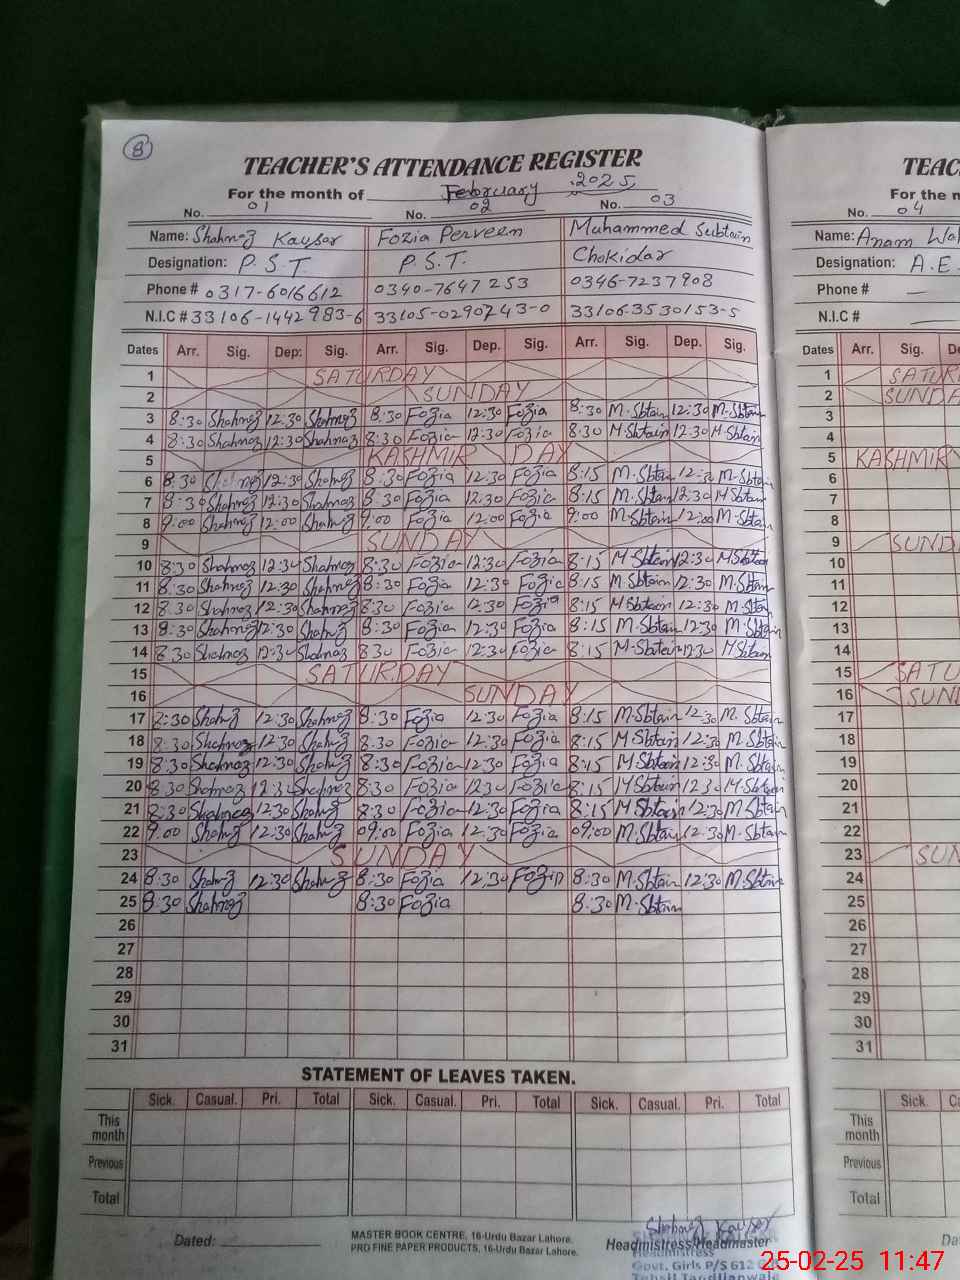 8
TEACHER'S ATTENDANCE REGISTER
For the month of February 2025
No. 01 No. 02 No. 03
Name: Shahnaz Kausar Fozia Perveen Muhammed Subtain
Designation: P.S.T. P.S.T. Chokidar
Phone # 0317-6016612 0340-7647253 0346-7237908
N.I.C # 33106-1442983-6 33105-0290743-0 33106-3530153-5
Dates Arr. Sig. Dep: Sig. Arr. Sig. Dep. Sig. Arr. Sig. Dep. Sig.
1 SATURDAY
2 SUNDAY
3 8:30 Shahnaz 12:30 Shahnaz 8:30 Fozia 12:30 Fozia 8:30 M-Sbtain 12:30 M-Sbtain
4 8:30 Shahnaz 12:30 Shahnaz 8:30 Fozia 12:30 Fozia 8:30 M Sbtain 12:30 M-Sbtain
5 KASHMIR DAY
6 8:30 12:30 Shahnaz 8:30 Fozia 12:30 Fozia 8:15 M-Sbtain 12:30 M-Sbtain
7 8:30 Shahnaz 12:30 Shahnaz 8:30 Fozia 12:30 Fozia 8:15 M-Sbtain 12:30 M Sbtain
8 9:00 Shahnaz 12:00 Shahnaz 9:00 Fozia 12:00 Fozia 9:00 M-Sbtain 12:00 M-Sbtain
9 SUNDAY
10 8:30 Shahnaz 12:30 Shahnaz 8:30 Fozia 12:30 Fozia 8:15 M Sbtain 12:30 M Sbtain
11 8:30 Shahnaz 12:30 Shahnaz 8:30 Fozia 12:30 Fozia 8:15 M-Sbtain 12:30 M-Sbtain
12 8:30 Shahnaz 12:30 Shahnaz 8:30 Fozia 12:30 Fozia 8:15 M Sbtain 12:30 M-Sbtain
13 8:30 Shahnaz 12:30 Shahnaz 8:30 Fozia 12:30 Fozia 8:15 M-Sbtain 12:30 M-Sbtain
14 8:30 Shahnaz 12:30 Shahnaz 8:30 Fozia 12:30 Fozia 8:15 M-Sbtain 12:30 M Sbtain
15 SATURDAY
16 SUNDAY
17 8:30 Shahnaz 12:30 Shahnaz 8:30 Fozia 12:30 Fozia 8:15 M-Sbtain 12:30 M-Sbtain
18 8:30 Shahnaz 12:30 Shahnaz 8:30 Fozia 12:30 Fozia 8:15 M Sbtain 12:30 M-Sbtain
19 8:30 Shahnaz 12:30 Shahnaz 8:30 Fozia 12:30 Fozia 8:15 M Sbtain 12:30 M-Sbtain
20 8:30 Shahnaz 12:30 Shahnaz 8:30 Fozia 12:30 Fozia 8:15 M Sbtain 12:30 M-Sbtain
21 8:30 Shahnaz 12:30 Shahnaz 8:30 Fozia 12:30 Fozia 8:15 M Sbtain 12:30 M Sbtain
22 9:00 Shahnaz 12:30 Shahnaz 09:00 Fozia 12:30 Fozia 09:00 M-Sbtain 12:30 M-Sbtain
23 SUNDAY
24 8:30 Shahnaz 12:30 Shahnaz 8:30 Fozia 12:30 Fozia 8:30 M-Sbtain 12:30 M-Sbtain
25 8:30 Shahnaz 8:30 Fozia 8:30 M-Sbtain
26
27
28
29
30
31
STATEMENT OF LEAVES TAKEN.
Sick. Casual. Pri. Total Sick. Casual. Pri. Total Sick. Casual. Pri. Total
This month
Previous
Total
Dated:
MASTER BOOK CENTRE, 16-Urdu Bazar Lahore.
PRO FINE PAPER PRODUCTS, 16-Urdu Bazar Lahore.
Shahnaz Kausar
Headmistress/Headmaster
Headmistress
Govt. Girls P/S 612
Tehsil Tandlianwala
TEAC
For the m
No. 04
Name: Anam
Designation: A.E.
Phone #
N.I.C #
Dates Arr. Sig. De
1 SATUR
2 SUNDA
3
4
5 KASHMIR
6
7
8
9 SUND
10
11
12
13
14
15 SATU
16 SUN
17
18
19
20
21
22
23 SUN
24
25
26
27
28
29
30
31
Sick. C
This month
Previous
Total
Da
25-02-25 11:47